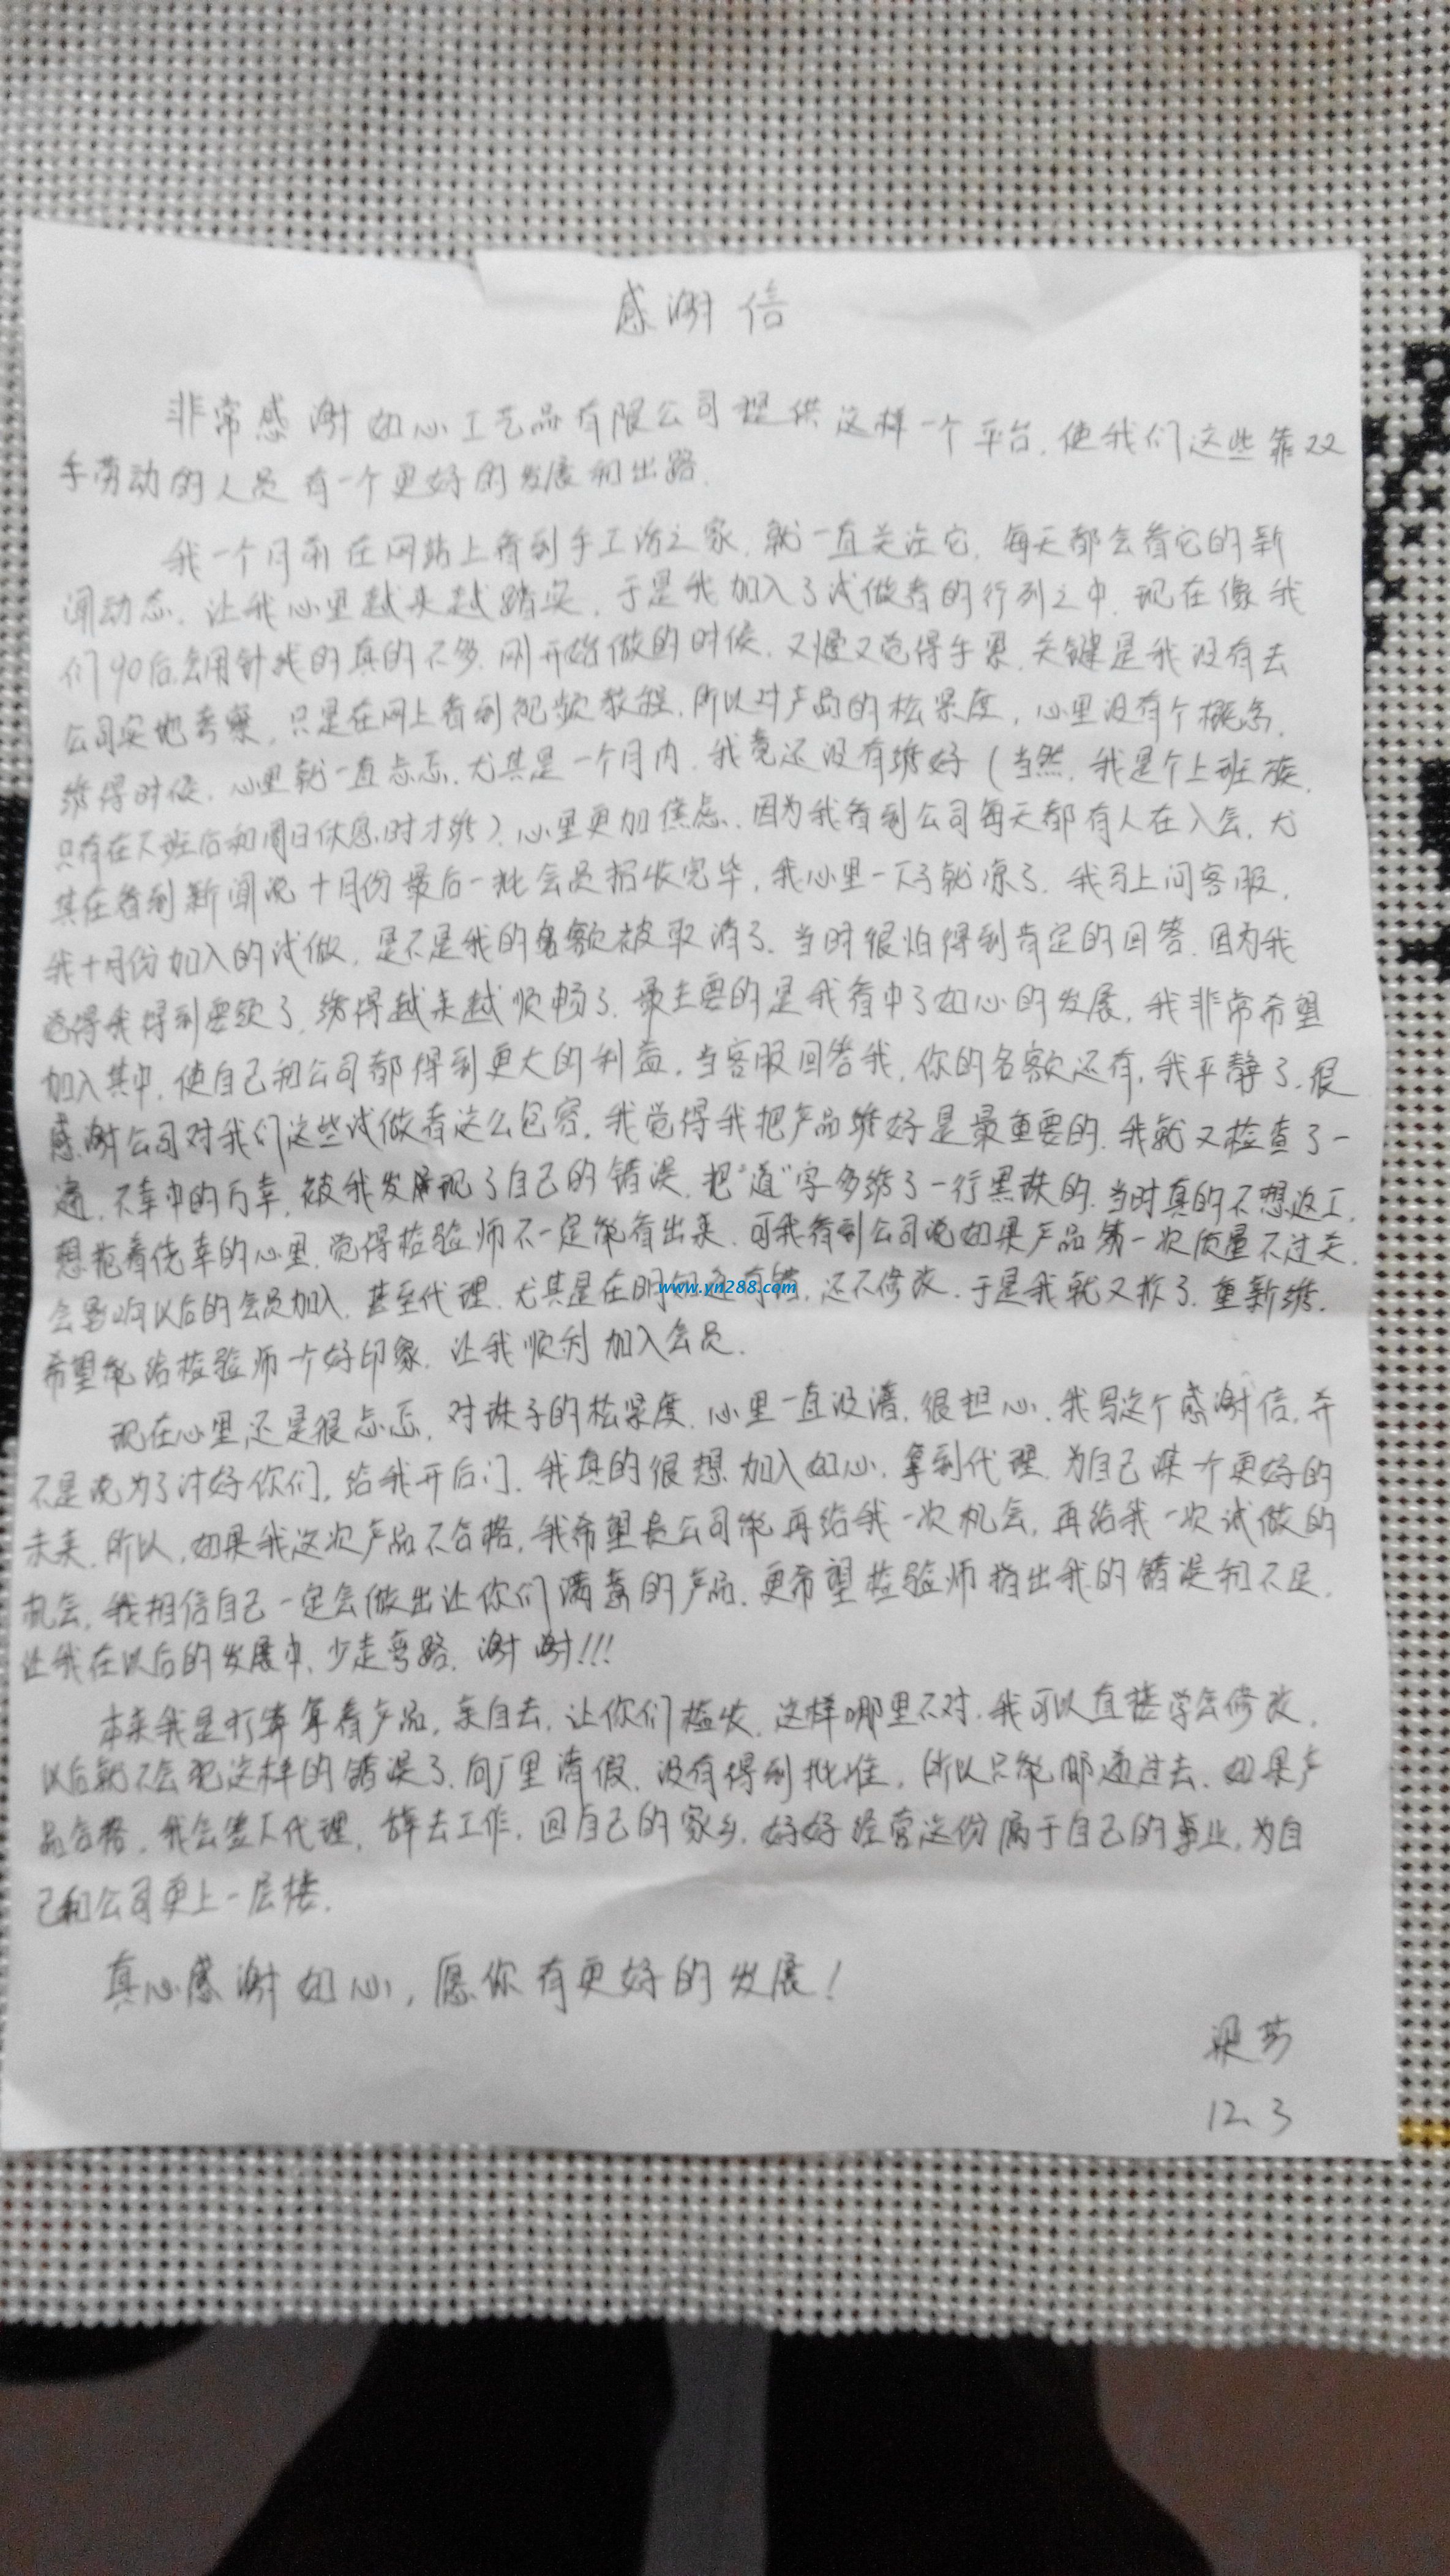 感谢信
非常感谢如心工艺品有限公司提供这样一个平台，使我们这些靠双
手劳动的人员有一个更好的发展和出路．
我一个月前在网站上看到手工活之家，就一直关注它，每天都会看它的新
闻动态，让我心里越来越踏实，于是我加入了试做者的行列之中，现在像我
们90后，会用针线的真的不多，刚开始做的时候，又慢又觉得手累，关键是我没有去
公司实地考察，只是在网上看到视频教程，所以对产品的松紧度，心里没有个概念，
绣得时候，心里就一直忐忑，尤其是一个月内，我竟还没有绣好（当然，我是个上班族，
只有在下班后和周日休息时才绣），心里更加焦虑，因为我看到公司每天都有人在入会，尤
其在看到新闻说十月份最后一批会员招收完毕，我心里一下子就凉了，我马上问客服，
我十月份加入的试做，是不是我的名额被取消了，当时很怕得到肯定的回答，因为我
觉得我得到要领了，绣得越来越顺畅了，最主要的是我看中了如心的发展，我非常希望
加入其中，使自己和公司都得到更大的利益，当客服回答我，你的名额还有，我平静了，很
感谢公司对我们这些试做者这么包容，我觉得我把产品绣好是最重要的，我就又检查了一
遍，不幸中的万幸，被我发现了自己的错误，把“道”字多绣了一行黑珠的，当时真的不想返工，
想抱着侥幸的心里，觉得检验师不一定能看出来，可我看到公司说如果产品第一次质量不过关，
会影响以后的会员加入，甚至代理，尤其是在明知还有错，还不修改，于是我就又拆了，重新绣，
www.yn288.com
希望能给检验师一个好印象，让我顺利加入会员．
现在心里还是很忐忑，对珠子的松紧度，心里一直没谱，很担心，我写这个感谢信，并
不是说为了讨好你们，给我开后门，我真的很想加入如心，拿到代理，为自己谋一个更好的
未来，所以，如果我这次产品不合格，我希望贵公司能再给我一次机会，再给我一次试做的
机会，我相信自己一定会做出让你们满意的产品，更希望检验师指出我的错误和不足，
让我在以后的发展中，少走弯路，谢谢!!!
本来我是打算拿着产品，亲自去，让你们检收，这样哪里不对，我可以直接学会修改，
以后就不会犯这样的错误了，向厂里请假，没有得到批准，所以只能邮递过去，如果产
品合格，我会签下代理，辞去工作，回自己的家乡，好好经营这份属于自己的事业，为自
己和公司更上一层楼．
真心感谢如心，愿你有更好的发展！
12.3